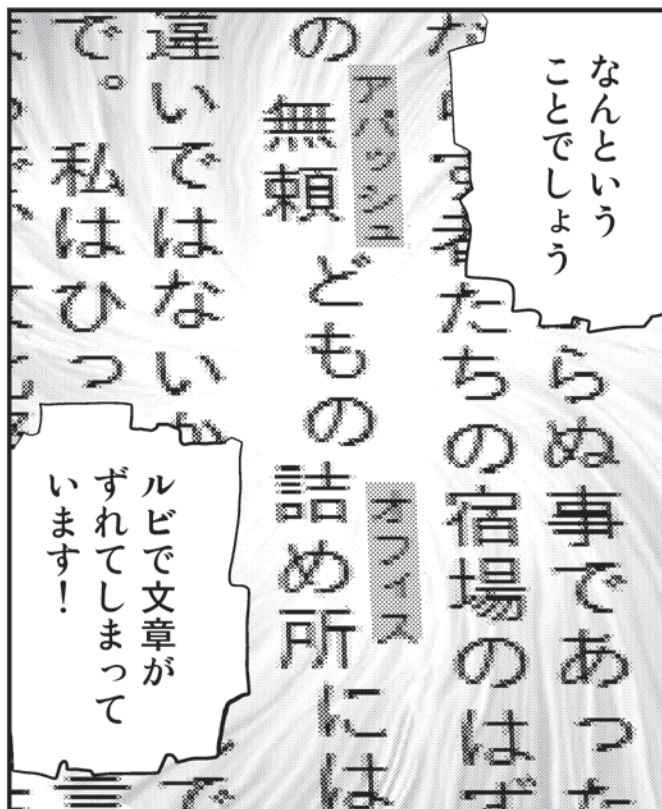 なんという
ことでしょう
らぬ事であった
者たちの宿場のはず
の無頼どもの詰め所には
アパッシュ
オフィス
違いではないか
で。私はひっ
ルビで文章が
ずれてしまって
います！